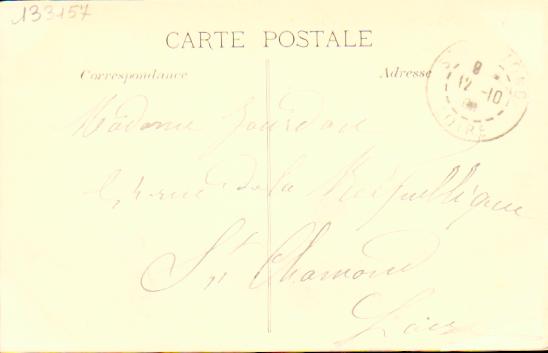 133157
CARTE POSTALE
Correspondance
Adresse
8
12-10
LOIRE
Madame Jourdan
rue de la République
St Chamond
Loire